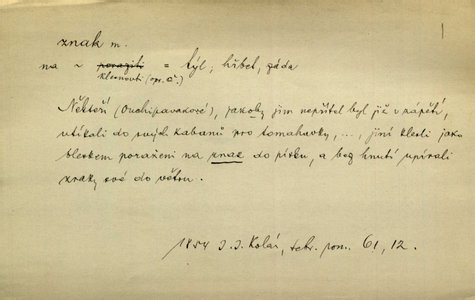 1
znak m.
na ~ poraziti = týl, hřbet, záda
klesnouti (opr. č.)
Někteří (Ouchipavakové), jakoby jim nepřítel byl již v zápětí,
utíkali do svých kabanů pro tomahavky, ..., jiní klesli jako
bleskem poraženi na znak do písku, a bez hnutí upírali
zraky své do větru.
1854 J. J. Kolár, sebr. pov. 61, 12.